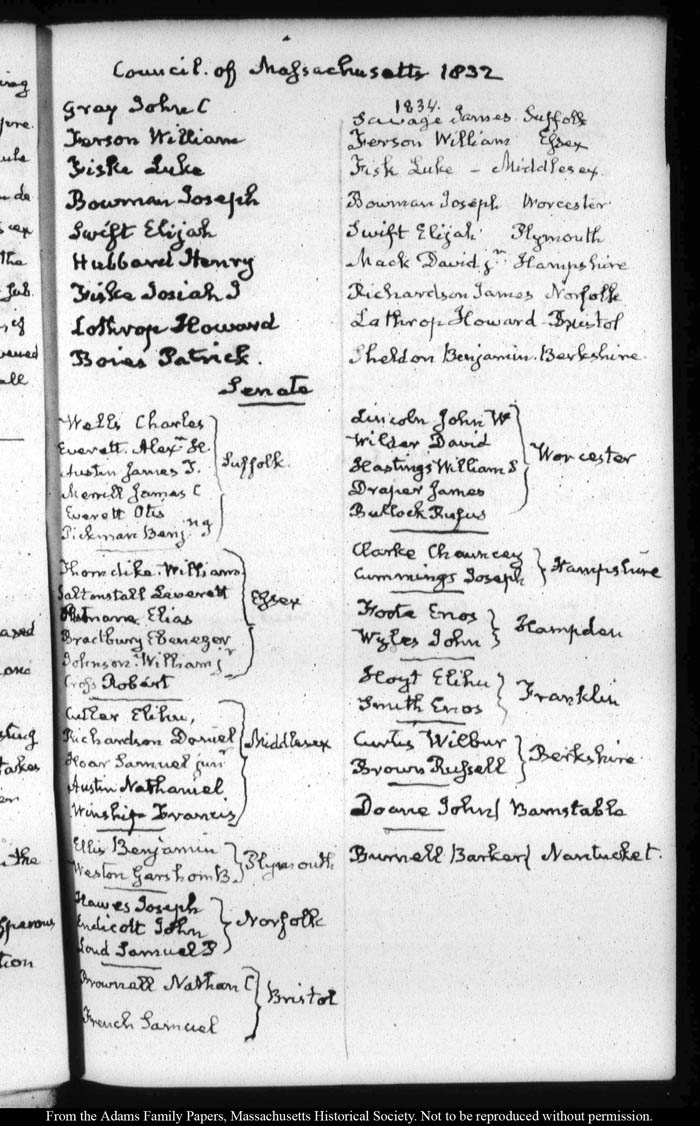 Council. of Massachusetts 1832
Gray John C
Ferson William
Fiske Luke
Bowman Joseph
Swift Elijah
Hubbard Henry
Fiske Josiah J
Lothrop Howard
Boies Patrick.
1834.
Savage James. Suffolk
Ferson William Essex
Fisk Luke - Middlesex.
Bowman Joseph Worcester
Swift Elijah Plymouth
Mack David jr Hampshire
Richardson James Norfolk
Lathrop Howard Bristol
Sheldon Benjamin. Berkshire.
Senate
Wells Charles
Everett. Alexr H.
Austin James T.
Suffolk.
Merrill James C
Everett Otis
Pickman Benj.
Thorndike. William
Saltonstall Leverett
Essex
Putnam Elias
Bradbury Ebenezer
Johnson. William jr
Cross Robert
Cutler Elihu,
Richardson Daniel
Middlesex
Hoar Samuel junr
Austin Nathaniel
Winship Francis
Ellis Benjamin
Plymouth
Weston Gershom B.
Hawes Joseph
Endicott John
Norfolk
Loud Samuel P
Brownell Nathan C
Bristol
French Samuel
Lincoln John W
Wilder David
Hastings William S
Worcester
Draper James
Bullock Rufus
Clarke Chauncey
Hampshire
Cummings Joseph
Foote Enos
Hampden
Wyles John
Hoyt Elihu
Franklin
Smith Enos
Curtis Wilbur
Berkshire
Brown Russell
Doane John Barnstable
Burnell Barker Nantucket.
From the Adams Family Papers, Massachusetts Historical Society. Not to be reproduced without permission.